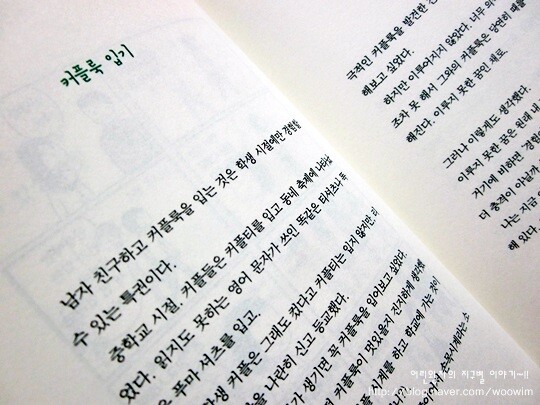 커플룩 입기
남자 친구하고 커플룩을 입는 것은 학생 시절에만 경험할
수 있는 특권이다.
중학교 시절, 커플들은 커플티를 입고 동네 축제에 나타났
었다. 읽지도 못하는 영어 문자가 쓰인 똑같은 티셔츠나 똑
은 푸마 셔츠를 입고.
생 커플은 그래도 컸다고 커플티는 입지 않지만, 티
을 나란히 신고 등교했다.
가 생기면 꼭 커플룩을 입어보고 싶었다.
커플룩이 멋있을지 진지하게 생각했
를 하고, 학교에 가는 것이
극적인 커플룩을 발견한
해보고 싶었다.
하지만 이루어지지 않았다. 너무
조차 못 해서 그와의 커플룩은 당연히
해진다. 이루지 못한 꿈인 채로.
그러나 이렇게도 생각했다.
이루지 못한 꿈은 원대
자기에 비하면, 경험
더 충격이 아닌가,
나는 지금
해 있다.
어린왕자의 지구별 이야기~!!
http://blog.naver.com/woowim